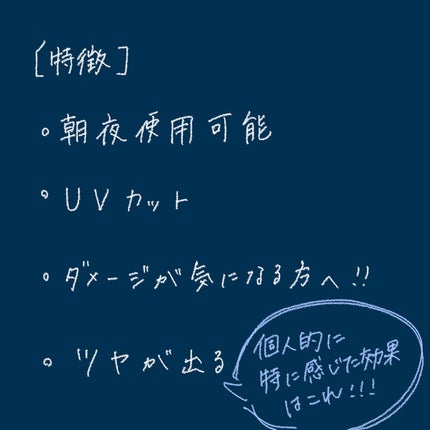 [特徴]
。朝夜使用可能
。UVカット
。ダメージが気になる方へ!!
。ツヤが出る
個人的に
特に感じた効果
はこれ!!!